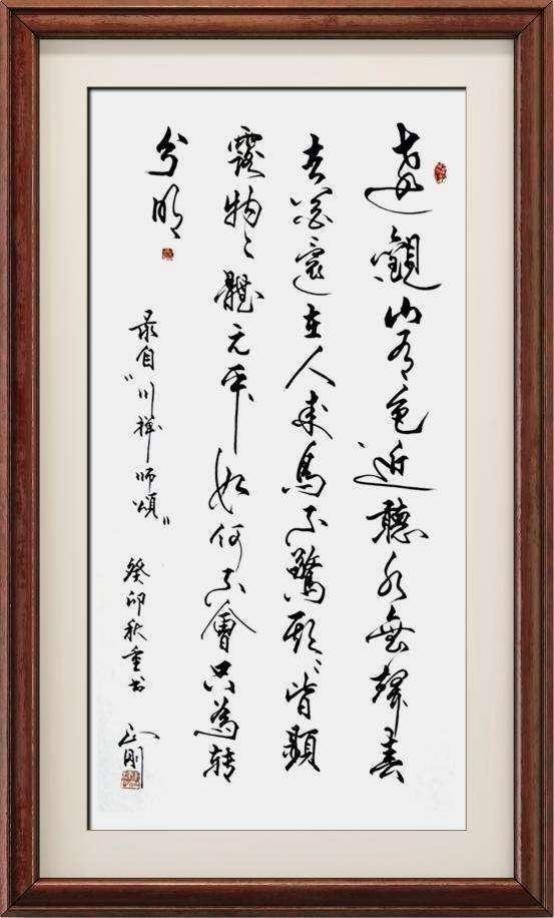 遠觀山有色近聽水無聲春
去花還在人來鳥不驚頭〻皆顯
露物〻體元平如何不會只為转
分明
录自“川禪师頌”
癸卯秋重书